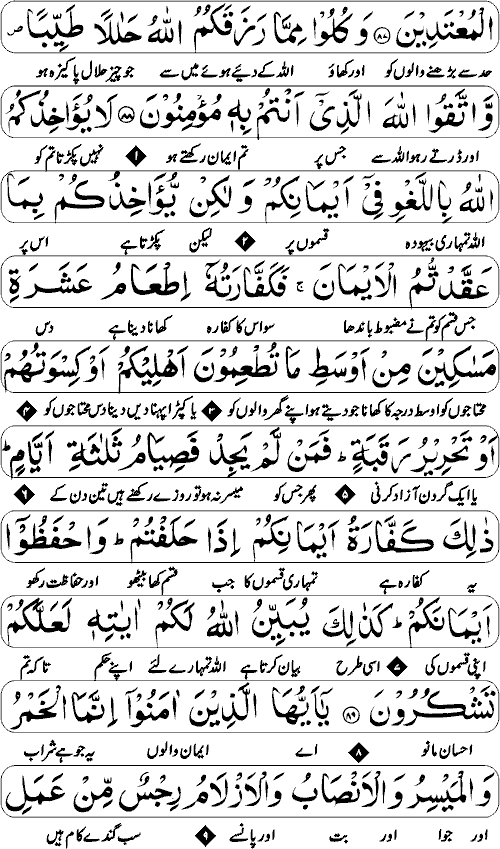 الْمُعْتَدِيْنَ ﴿۸۷﴾ وَكُلُوْا مِمَّا رَزَقَكُمُ اللّٰهُ حَلٰلًا طَيِّبًا ص
حد سے بڑھنے والوں کو اور کھاؤ اللہ کے دئیے ہوئے میں سے جو چیز حلال پاکیزہ ہو
وَّاتَّقُوا اللّٰهَ الَّذِىْۤ اَنْتُمْ بِهٖ مُؤْمِنُوْنَ ﴿۸۸﴾ لَا يُؤَاخِذُكُمُ
اور ڈرتے رہو اللہ سے جس پر تم ایمان رکھتے ہو ۱ نہیں پکڑتا تم کو
اللّٰهُ بِاللَّغْوِ فِىْۤ اَيْمَانِكُمْ وَلٰكِنْ يُّؤَاخِذُكُمْ بِمَا
اللہ تمہاری بیہودہ قسموں پر ۲ لیکن پکڑتا ہے اس پر
عَقَّدْتُّمُ الْاَيْمَانَ ۚ فَكَفَّارَتُهٗۤ اِطْعَامُ عَشَرَةِ
جس قسم کو تم نے مضبوط باندھا سو اس کا کفارہ کھانا دینا ہے دس
مَسٰكِيْنَ مِنْ اَوْسَطِ مَا تُطْعِمُوْنَ اَهْلِيْكُمْ اَوْ كِسْوَتُهُمْ
محتاجوں کو اوسط درجہ کا کھانا جو دیتے ہو اپنے گھر والوں کو ۳ یا کپڑا پہنا دیں دینا دس محتاجوں کو ۴
اَوْ تَحْرِيْرُ رَقَبَةٍ ؕ فَمَنْ لَّمْ يَجِدْ فَصِيَامُ ثَلٰثَةِ اَيَّامٍ ؕ
یا ایک گردن آزاد کرنی ۵ پھر جس کو میسر نہ ہو تو روزے رکھنے ہیں تین دن کے ۶
ذٰلِكَ كَفَّارَةُ اَيْمَانِكُمْ اِذَا حَلَفْتُمْ ؕ وَاحْفَظُوْۤا
یہ کفارہ ہے تمہاری قسموں کا جب قسم کھا بیٹھو اور حفاظت رکھو
اَيْمَانَكُمْ ؕ كَذٰلِكَ يُبَيِّنُ اللّٰهُ لَكُمْ اٰيٰتِهٖ لَعَلَّكُمْ
اپنی قسموں کی ۷ اسی طرح بیان کرتا ہے اللہ تمہارے لئے اپنے حکم تاکہ تم
تَشْكُرُوْنَ ﴿۸۹﴾ يٰۤاَيُّهَا الَّذِيْنَ اٰمَنُوْۤا اِنَّمَا الْخَمْرُ
احسان مانو ۸ اے ایمان والوں یہ جو ہے شراب
وَالْمَيْسِرُ وَالْاَنْصَابُ وَالْاَزْلَامُ رِجْسٌ مِّنْ عَمَلِ
اور جوا اور بت اور پانسے ۹ سب گندے کام ہیں